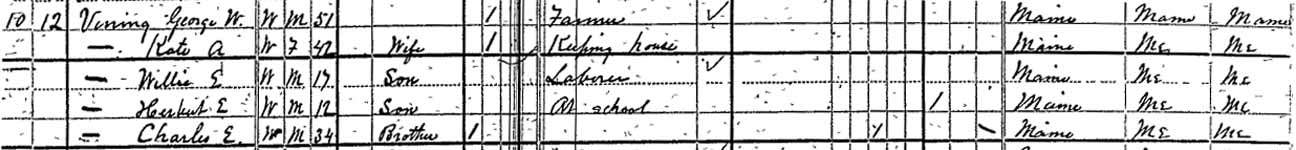 10 12 Vining George W. W M 51 1 Farmer ✓ Maine Maine Maine
— Kate A W F 42 Wife 1 Keeping house Maine Me Me
— Willie E W M 17 Son Laborer ✓ Maine Me Me
— Herbert E W M 12 Son At school 1 Maine Me Me
— Charles E. W M 34 Brother 1 1 — Maine Me Me